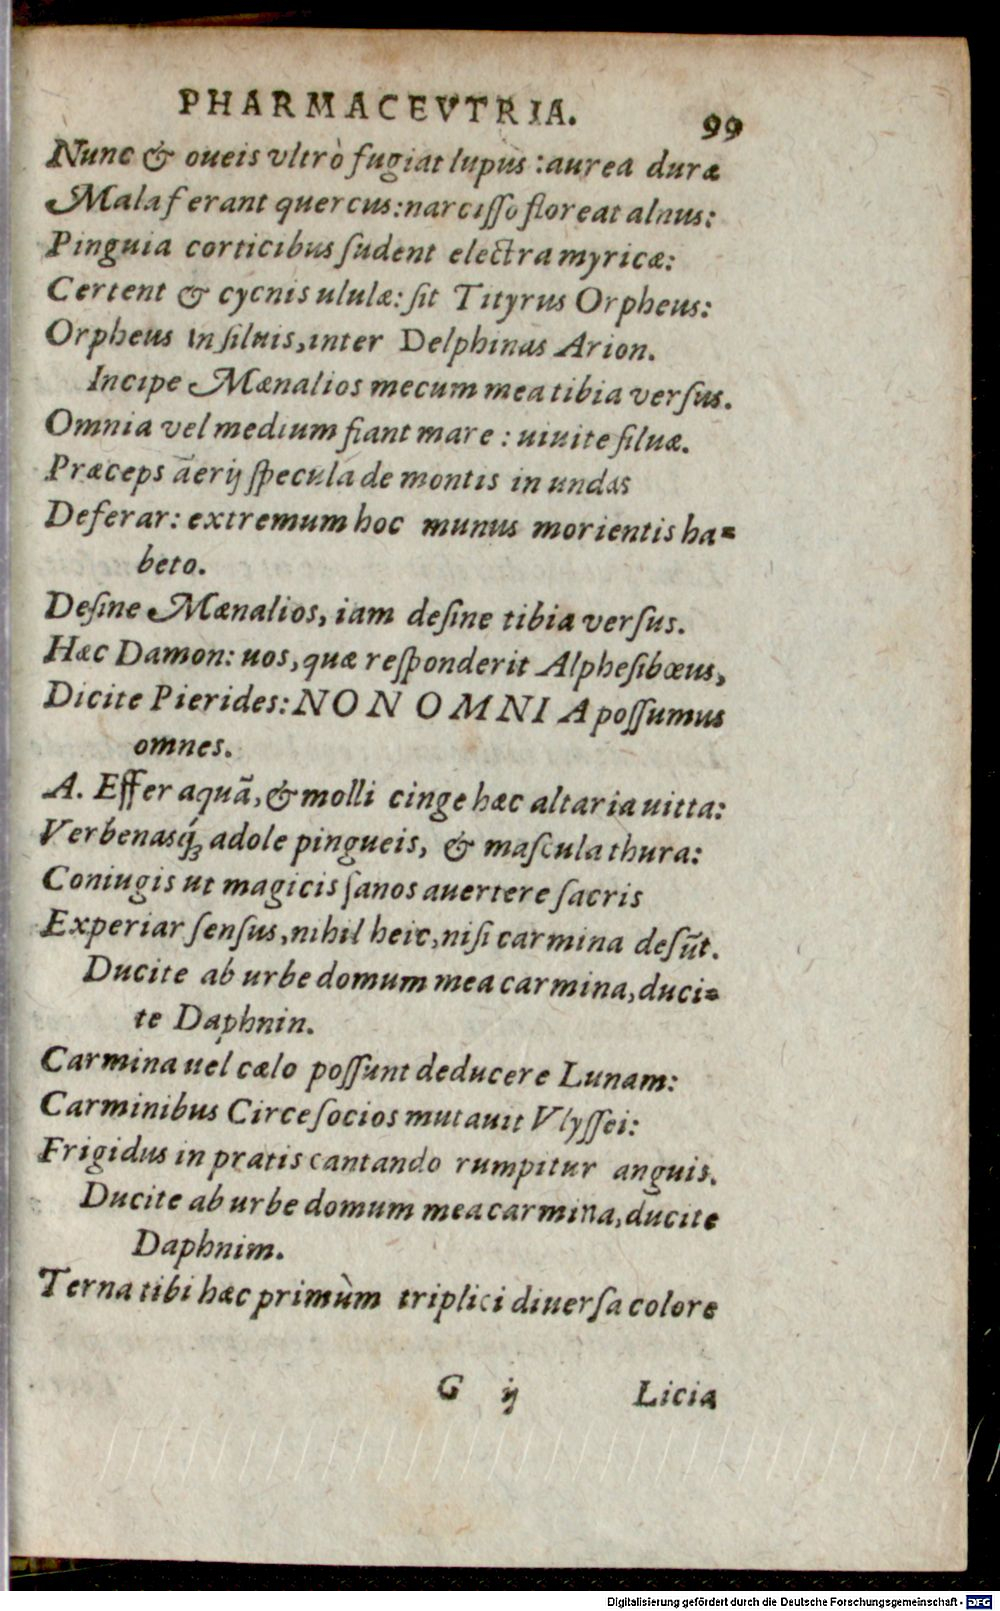 PHARMACEVTRIA.
99
Nunc & oueis vltrò fugiat lupus: aurea duræ
Mala ferant quercus: narcisso floreat alnus:
Pinguia corticibus sudent electra myricæ:
Certent & cycnis ululæ: sit Tityrus Orpheus:
Orpheus in siluis, inter Delphinas Arion.
Incipe Mænalios mecum mea tibia versus.
Omnia vel medium fiant mare: uiuite siluæ.
Præceps aërij specula de montis in undas
Deferar: extremum hoc munus morientis ha=
beto.
Desine Mænalios, iam desine tibia versus.
Hæc Damon: uos, quæ responderit Alphesibœus,
Dicite Pierides: NON OMNIA possumus
omnes.
A. Effer aquã, & molli cinge hæc altaria uitta:
Verbenasq́; adole pingueis, & mascula thura:
Coniugis ut magicis sanos auertere sacris
Experiar sensus, nihil heic, nisi carmina desũt.
Ducite ab urbe domum mea carmina, duci=
te Daphnin.
Carmina uel cælo possunt deducere Lunam:
Carminibus Circe socios mutauit Vlyssei:
Frigidus in pratis cantando rumpitur anguis.
Ducite ab urbe domum mea carmina, ducite
Daphnim.
Terna tibi hæc primùm triplici diuersa colore
G ij
Licia
Digitalisierung gefördert durch die Deutsche Forschungsgemeinschaft - DFG